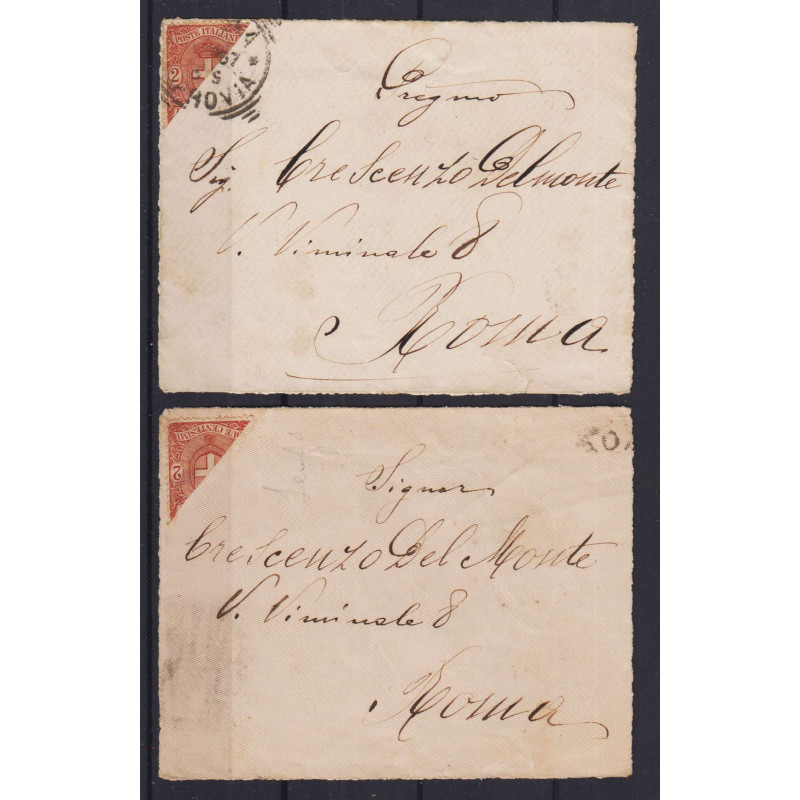 POSTE ITALIANE
2
Pregmo
Sig. Crescenzo Delmonte
V. Viminale 8
Roma
CENTESIMI
2
Signor
Crescenzo Del Monte
V. Viminale 8
Roma